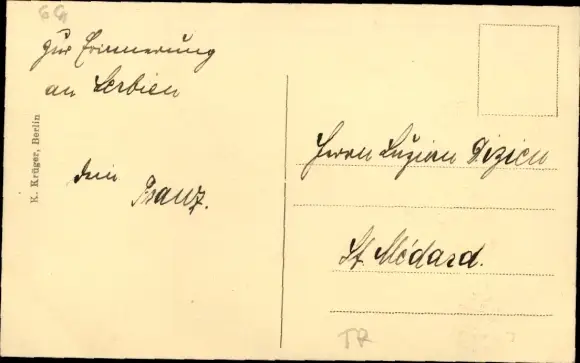 zur Erinnerung
an Serbien
dein Franz.
K. Krüger, Berlin
Herrn Luzian Dizien
St. Médard.
TR